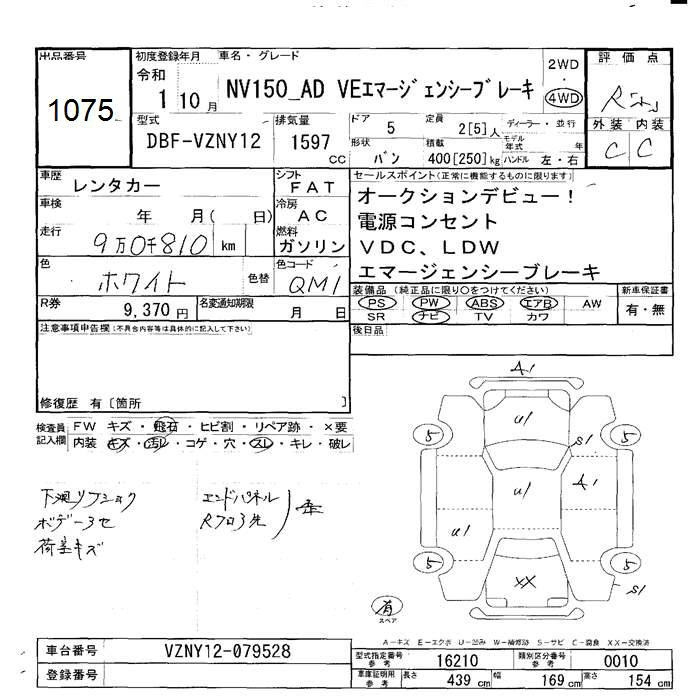 出品番号
1075
初度登録年月 車名・グレード
令和
1 10 月
NV150_AD VEエマージェンシーブレーキ
2WD
・
4WD
評価点
R
外装 内装
C C
型式
DBF-VZNY12
排気量
1597
CC
ドア 5
定員 2[5]人
ディーラー・並行
形状 バン
積載 400[250]kg
モデル年式 年
ハンドル 左・右
車歴
レンタカー
シフト
FAT
車検
年 月( 日)
冷房
AC
走行
9万0千810 km
燃料
ガソリン
色
ホワイト
色替
色コード
QM1
R券
9,370 円
名変通知期限
月 日
セールスポイント(正常に機能するものに限ります)
オークションデビュー!
電源コンセント
VDC、LDW
エマージェンシーブレーキ
装備品(純正品に限り○をつけてください)
新車保証書
PS PW ABS エアB AW
SR ナビ TV カワ
有・無
後日品
注意事項申告欄(不具合内容等は具体的に記入して下さい)
修復歴 有〔箇所 〕
検査員記入欄
FW キズ・飛石・ヒビ割・リペア跡・×要
内装 キズ・汚レ・コゲ・穴・スレ・キレ・破レ
下廻リフショク
ボデー3セ
荷室キズ
エンドパネル
Rフロ3先
A1
U1
5
5
S1
A1
U1
U1
5
5
XX
S1
有
スペア
A-キズ E-エクボ U-凹み W-補修跡 S-サビ C-腐食 XX-交換済
車台番号
VZNY12-079528
登録番号
型式指定番号参考
16210
類別区分番号参考
0010
車庫証明用参考
長さ 439 cm
幅 169 cm
高さ 154 cm